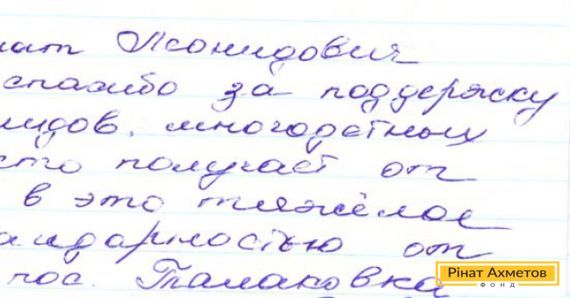 нат Леонидович
спасибо за поддержку
лидов, многодетных
сто получает от
в это тяжёлое
аидарностью от
пос. Талаковка
Рінат Ахметов
ФОНД